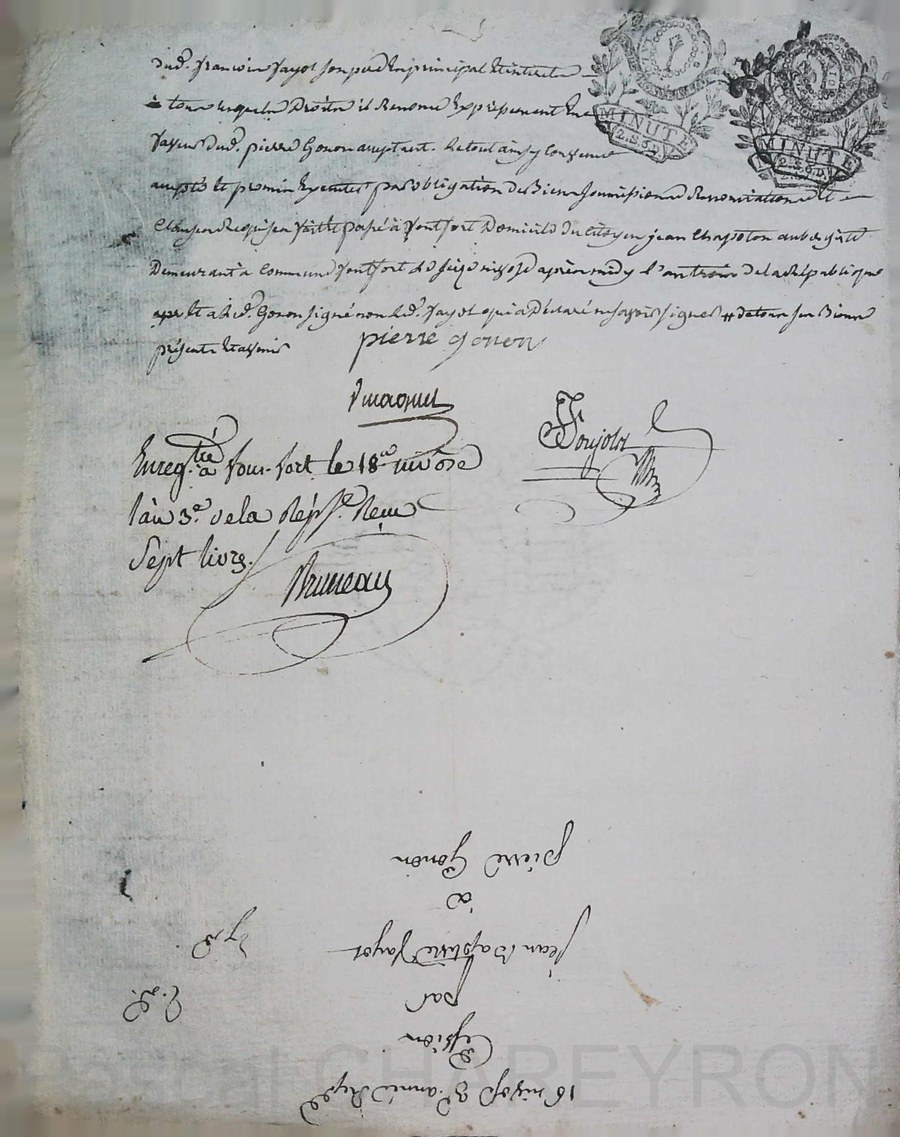 dud. francois fayot son pere En principal Et interets
a tous lesquels Droits il Renonce Expressement En
faveur dud. pierre Gonon acceptant. Le tout ainsy Convenu
accepté Et promis Executer par obligation de Biens soumissions Renonciations Et
Clauses Requises fait Et passé à fontfort Domicile du citoyen jean Chapoton aubergiste
Demeurant a Commune fontfort Le seize nivose après midy l'an trois de la république
Led. Gonon signé non led. fayot qui a Déclaré ne savoir signer # de tous ses Biens
présents Et avenir
pierre gonon
Enregtré à fonfort le 18e nivose
l'an 3e de la Répqe Reçu
Sept livres.
Bruneau
MINUTE
2.S.6.D.
MINUTE
16 nivose 3e année Rep
Cession
par
jean Baptiste fayot
à
pierre Gonon
Pascal CHAPEYRON